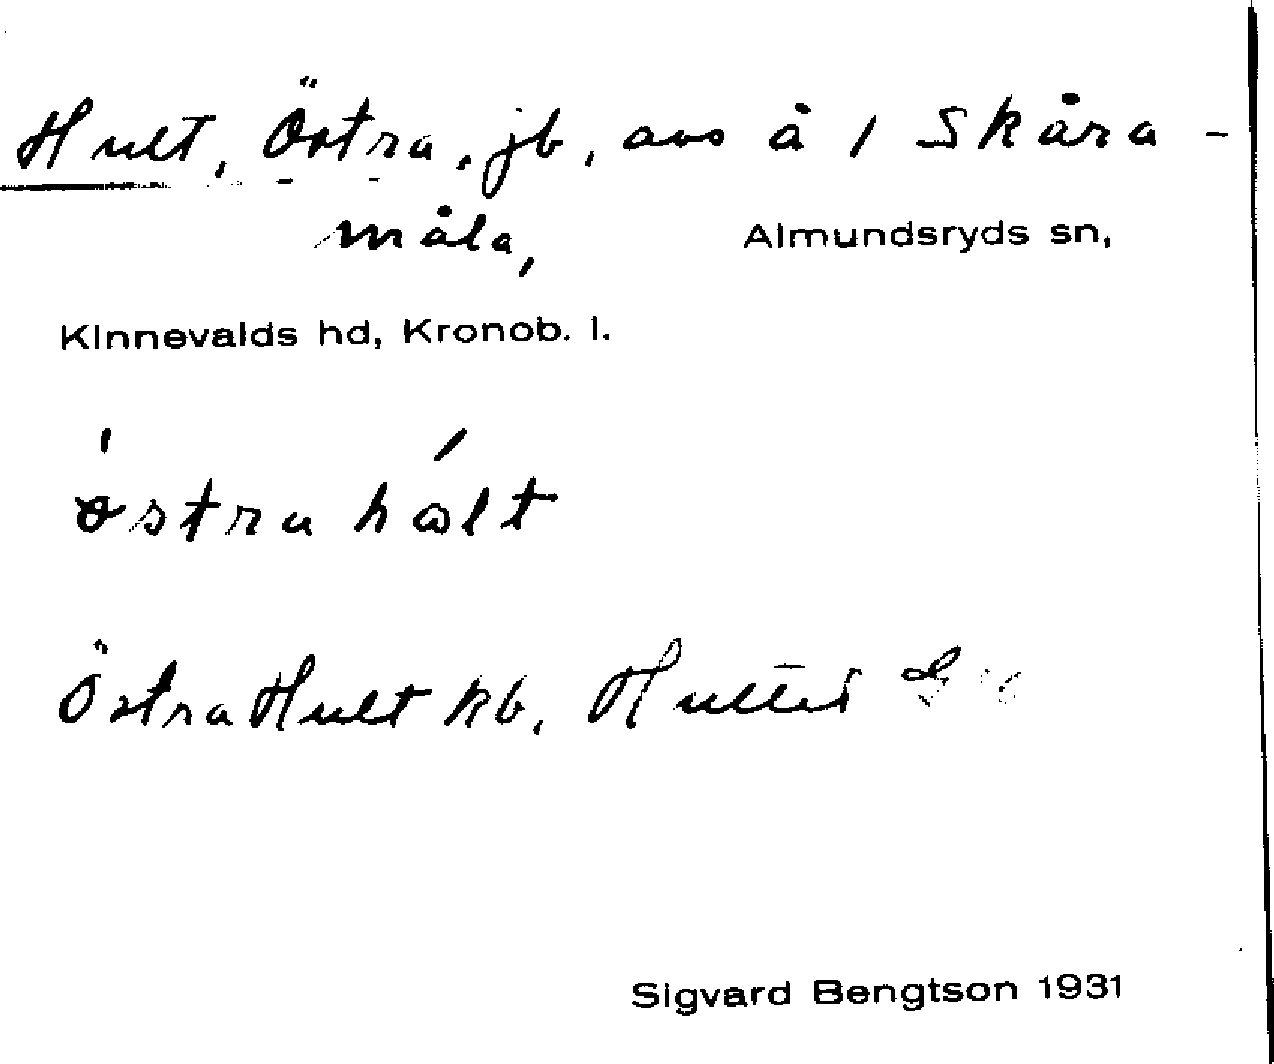 Hult, Östra, jb, avs å 1 Skåra-
måla, Almundsryds sn,
Kinnevalds hd, Kronob. l.
östra hɷlt
Östra Hult kb, Hultet
Sigvard Bengtson 1931